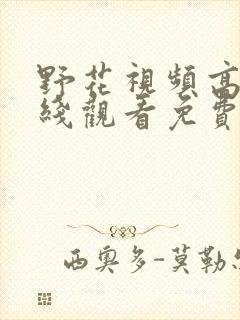 野花視頻高
綫觀看免費
西奥多-莫勒